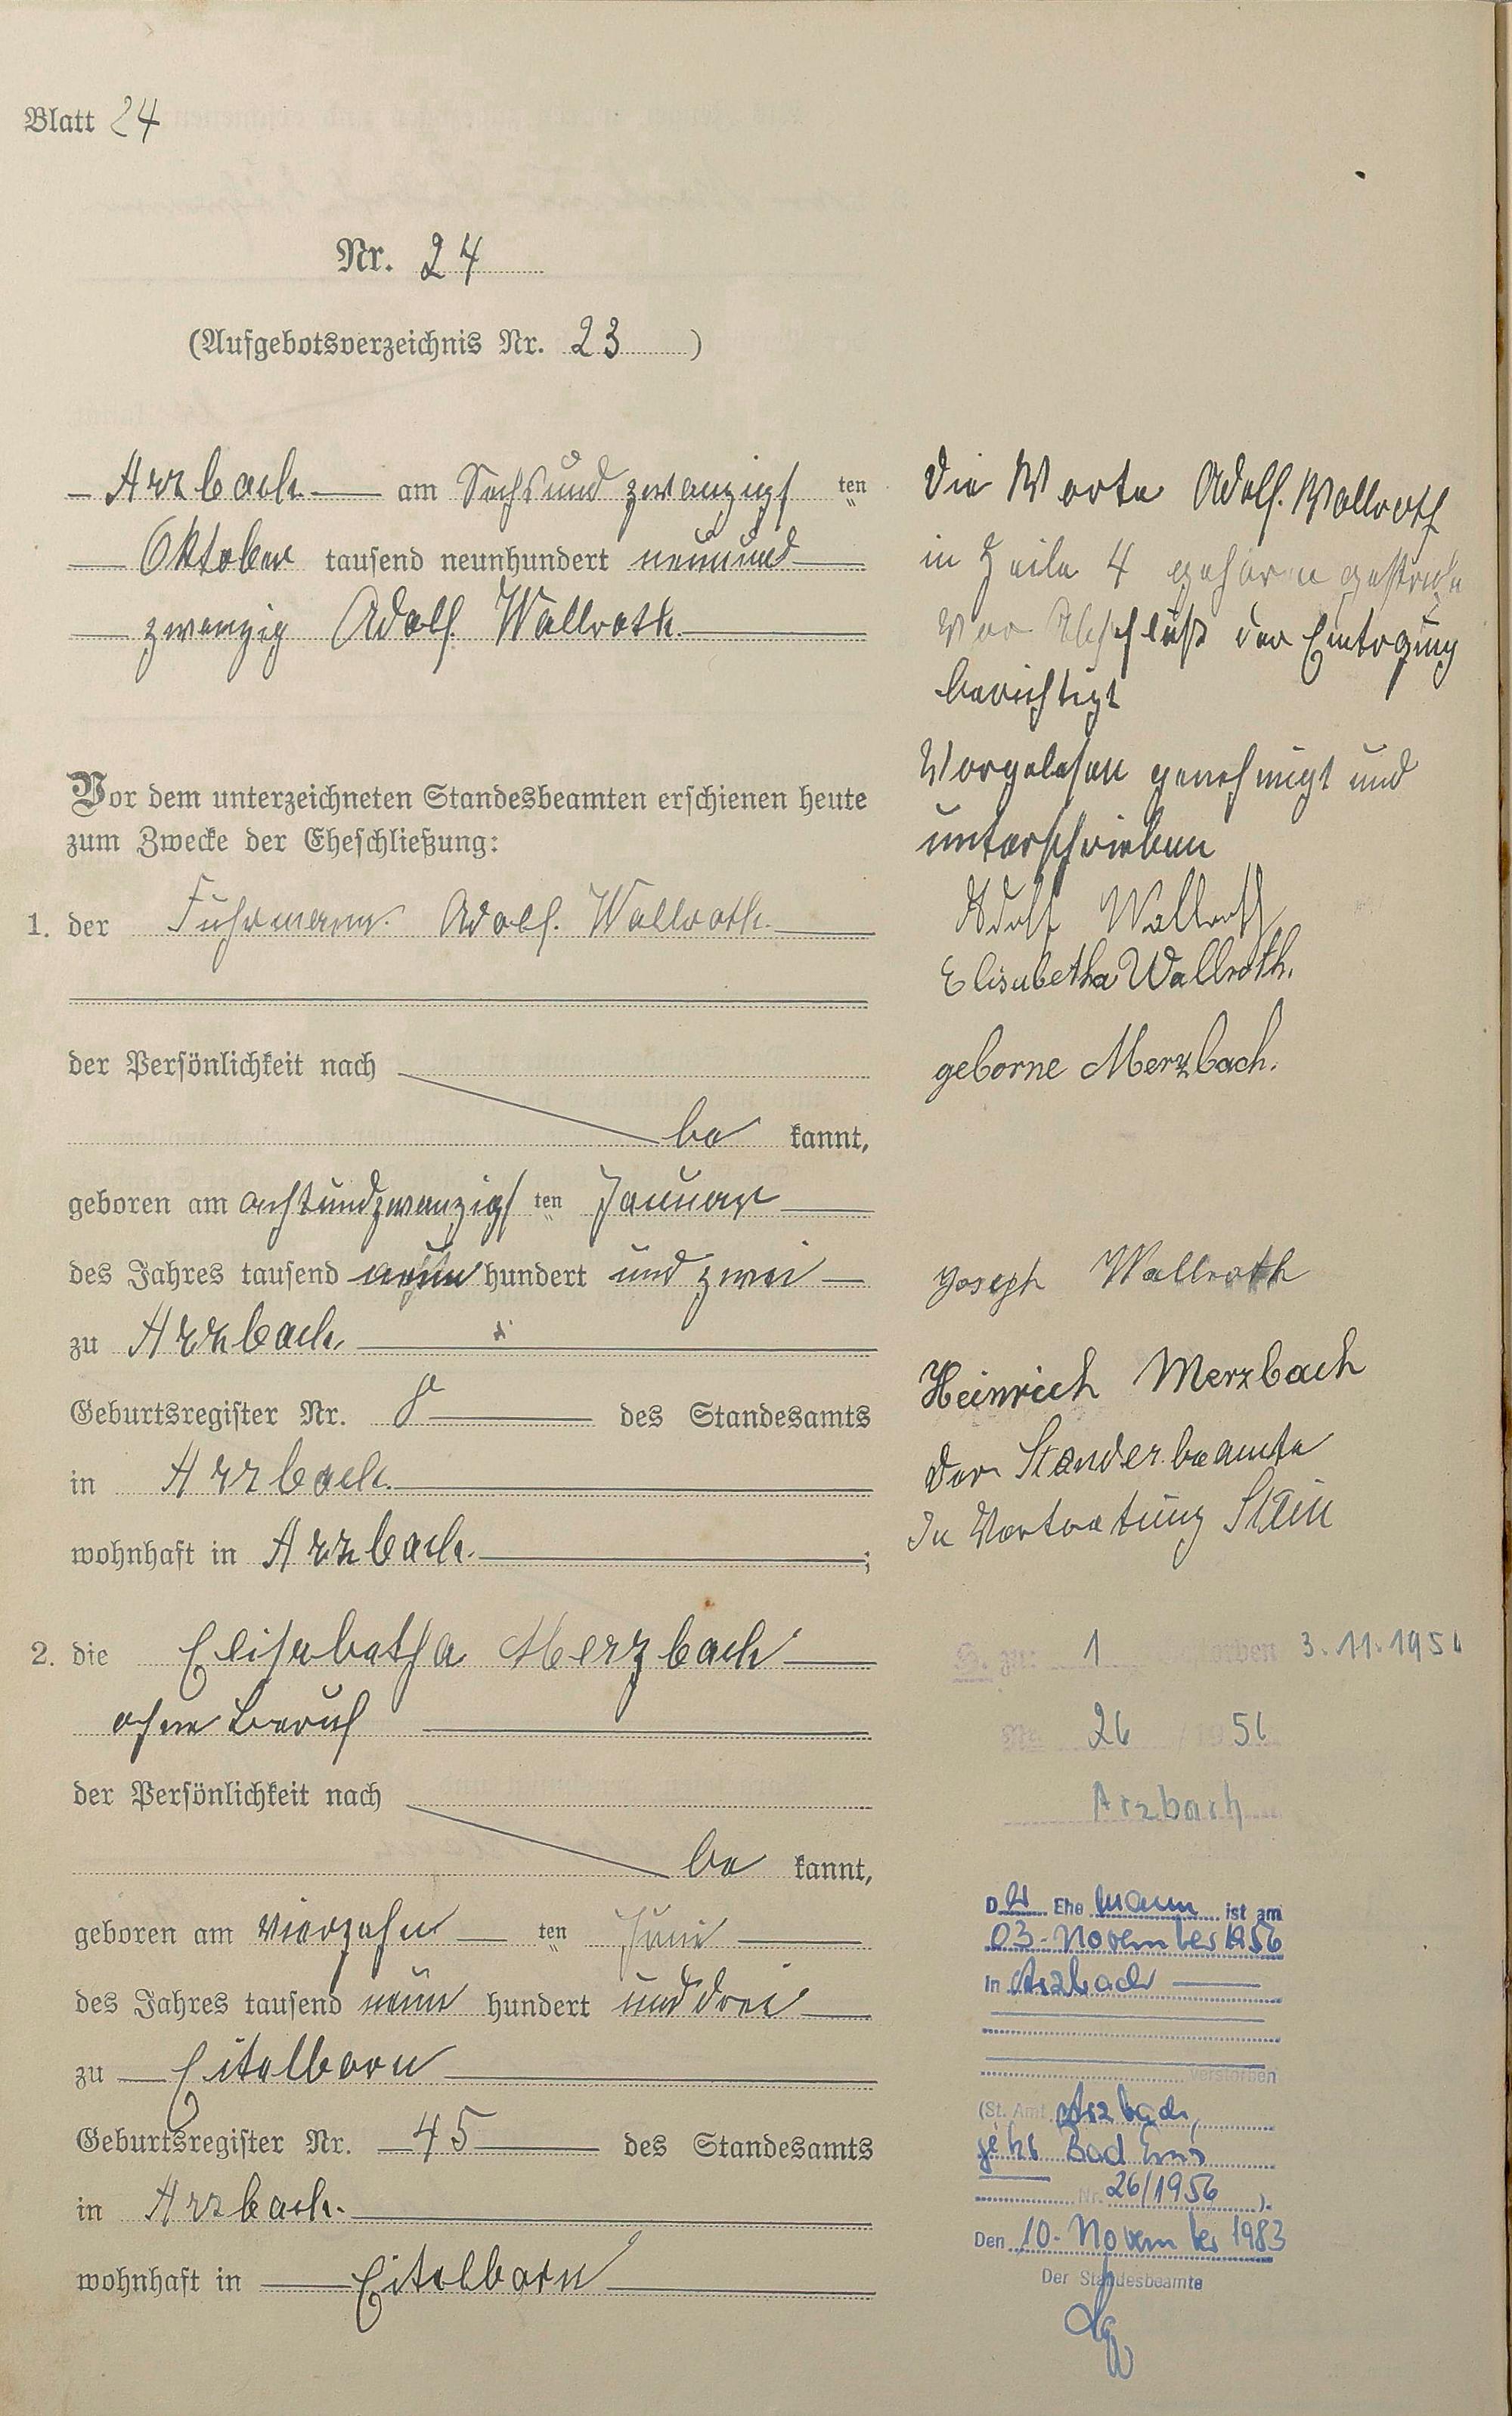 Blatt 24
Nr. 24
(Aufgebotsverzeichnis Nr. 23)
Arzbach am Sechsundzwanzigsten
Oktober tausend neunhundert neunund
zwanzig Adolf Wallroth
Vor dem unterzeichneten Standesbeamten erschienen heute
zum Zwecke der Eheschließung:
1. der Fuhrmann Adolf Wallroth
der Persönlichkeit nach
be kannt,
geboren am achtundzwanzigsten Januar
des Jahres tausend neun hundert und zwei
zu Arzbach
Geburtsregister Nr. 8 des Standesamts
in Arzbach
wohnhaft in Arzbach;
2. die Elisabetha Merzbach
ohne Beruf
der Persönlichkeit nach
be kannt,
geboren am vierzehnten Juni
des Jahres tausend neun hundert und drei
zu Eitelborn
Geburtsregister Nr. 45 des Standesamts
in Arzbach
wohnhaft in Eitelborn
Die Worte Adolf Wallroth
in Zeile 4
vor Abschluß der Eintragung
berichtigt
Vorgelesen genehmigt und
unterschrieben
Adolf Wallroth
Elisabetha Wallroth.
geborne Merzbach.
Joseph Wallroth
Heinrich Merzbach
Der Standesbeamte
In Vertretung Stein
zu: 1 3.11.1956
Nr. 26 / 1956
Arzbach
Der Ehemann ist am
03. November 1956
in Arzbach
verstorben
(St. Amt Arzbach,
jetzt Bad Ems
Nr. 26/1956).
Den 10. November 1983
Der Standesbeamte